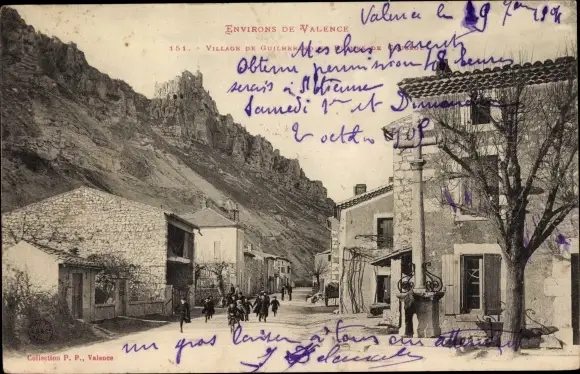 ENVIRONS DE VALENCE
151. - VILLAGE DE GUILHERAND
Valence le 29 7bre 1908
Mes chers parents
Obtenu permission 48 heures
serais à St Etienne
Samedi 1er et Dimanche
2 octobre 1908
un gros baiser à tous en attendant
Collection P. P., Valence